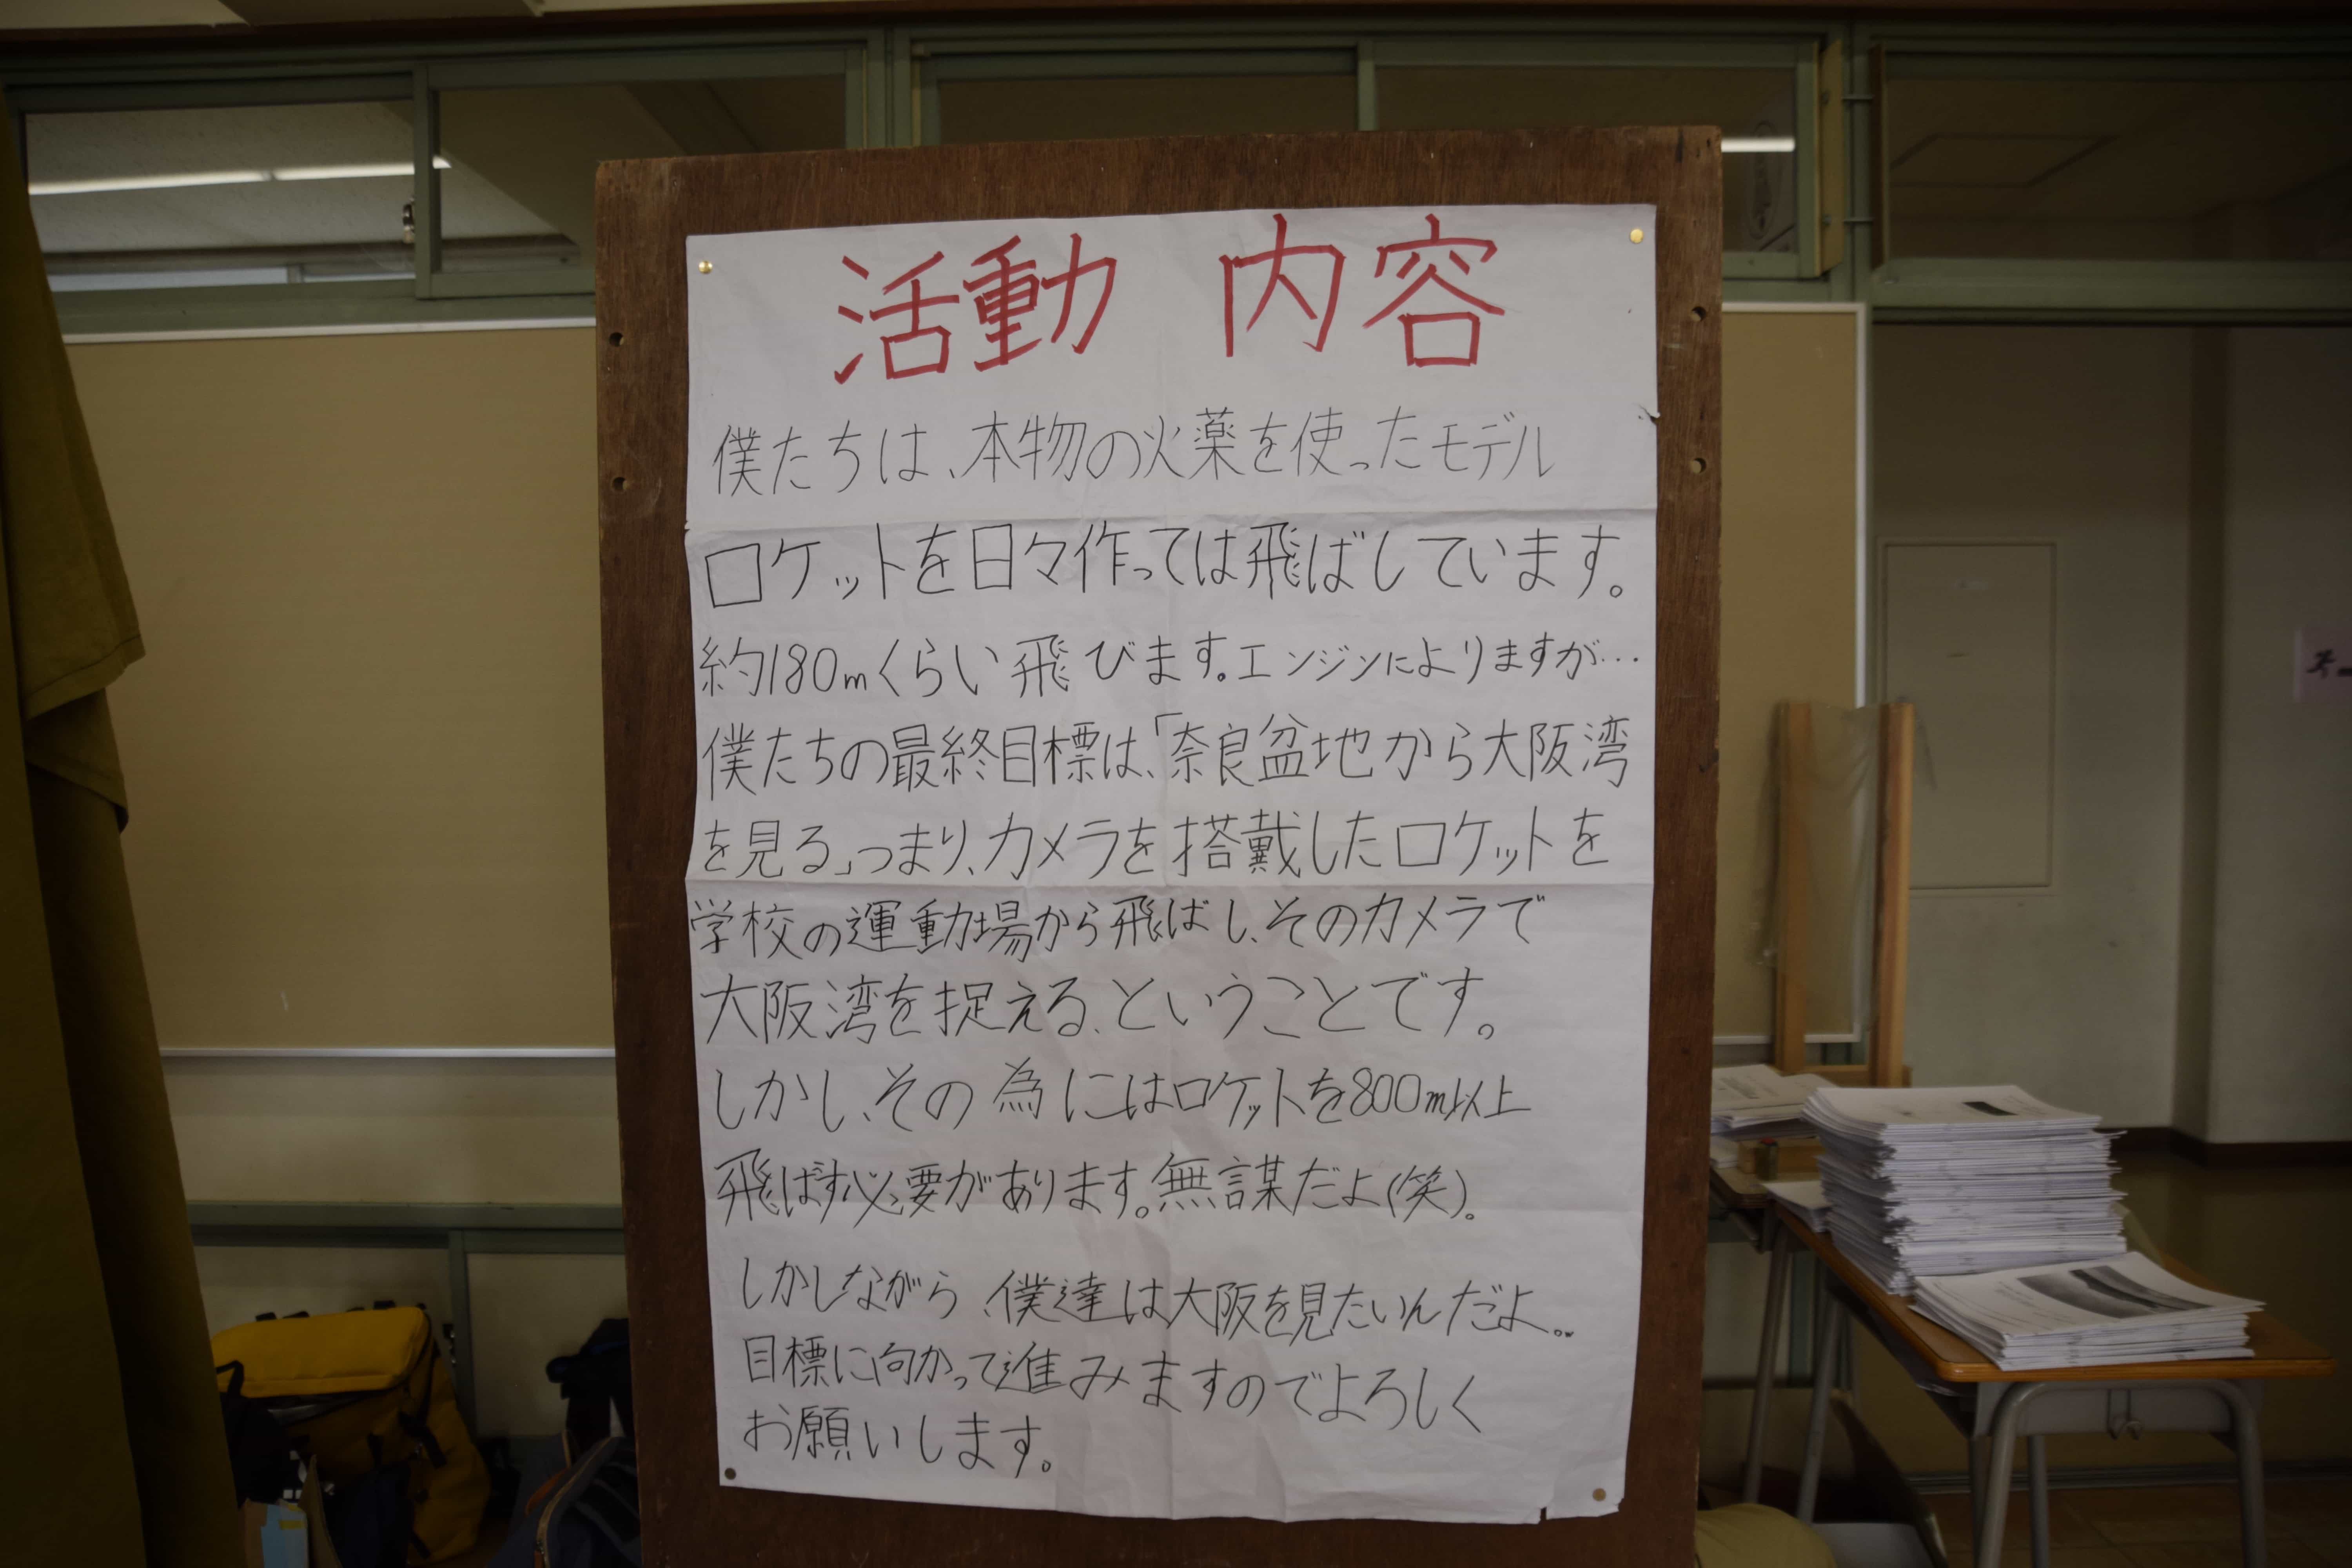 活動 内容
僕たちは、本物の火薬を使ったモデル
ロケットを日々作っては飛ばしています。
約180mくらい飛びます。エンジンによりますが…
僕たちの最終目標は、「奈良盆地から大阪湾
を見る」つまり、カメラを搭載したロケットを
学校の運動場から飛ばし、そのカメラで
大阪湾を捉える、ということです。
しかし、その為にはロケットを800m以上
飛ばす必要があります。無謀だよ(笑)。
しかしながら、僕達は大阪を見たいんだよ。。
目標に向かって進みますのでよろしく
お願いします。